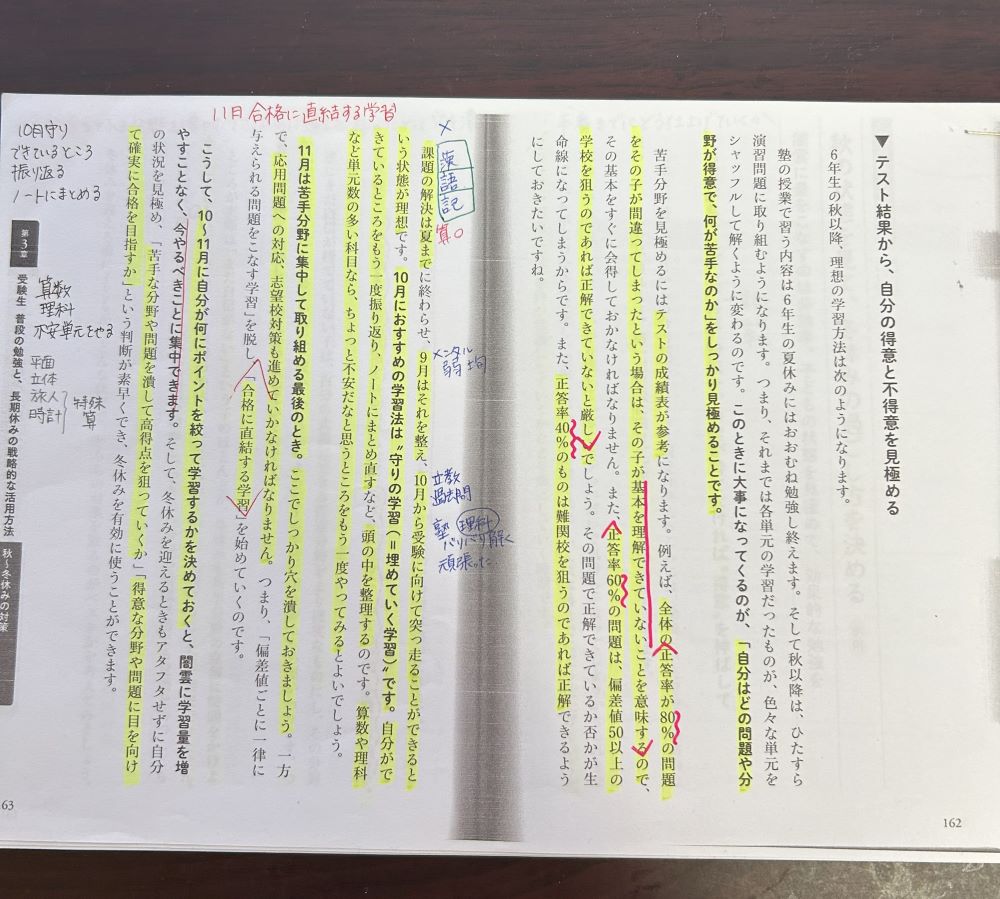 ▼テスト結果から、自分の得意と不得意を見極める
6年生の秋以降、理想の学習方法は次のようになります。
塾の授業で習う内容は6年生の夏休みにはおおむね勉強し終えます。そして秋以降は、ひたすら
演習問題に取り組むようになります。つまり、それまでは各単元の学習だったものが、色々な単元を
シャッフルして解くように変わるのです。このときに大事になってくるのが、「自分はどの問題や分
野が得意で、何が苦手なのか」をしっかり見極めることです。
苦手分野を見極めるにはテストの成績表が参考になります。例えば、全体の正答率が80%の問題
をその子が間違ってしまったという場合は、その子が基本を理解できていないことを意味するので、
その基本をすぐに会得しておかなければなりません。また、正答率60%の問題は、偏差値50以上の
学校を狙うのであれば正解できていないと厳しいでしょう。その問題で正解できているか否かが生
命線になってしまうからです。また、正答率40%のものは難関校を狙うのであれば正解できるよう
にしておきたいですね。
162
11月 合格に直結する学習
×
漢
語
記
算○
メンタル
弱
立教
過去問
塾 理科
バリバリ解く
頑張った
課題の解決は夏までに終わらせ、9月はそれを整え、10月から受験に向けて突っ走ることができると
いう状態が理想です。10月におすすめの学習法は“守りの学習(=埋めていく学習)”です。自分がで
きているところをもう一度振り返り、ノートにまとめ直すなど、頭の中を整理するのです。算数や理科
など単元数の多い科目なら、ちょっと不安だなと思うところをもう一度やってみるとよいでしょう。
11月は苦手分野に集中して取り組める最後のとき。ここでしっかり穴を潰しておきましょう。一方
で、応用問題への対応、志望校対策も進めていかなければなりません。つまり、「偏差値ごとに一律に
与えられる問題をこなす学習」を脱し、「合格に直結する学習」を始めていくのです。
こうして、10〜11月に自分が何にポイントを絞って学習するかを決めておくと、闇雲に学習量を増
やすことなく、今やるべきことに集中できます。そして、冬休みを迎えるときもアタフタせずに自分
の状況を見極め、「苦手な分野や問題を潰して高得点を狙っていくか」「得意な分野や問題に目を向け
て確実に合格を目指すか」という判断が素早くでき、冬休みを有効に使うことができます。
10月守り
できているところ
振り返る
ノートにまとめる
算数
理科
不安単元をやる
平面
立体
旅人
時計
特殊
算
第3章
受験生 普段の勉強と、長期休みの戦略的な活用方法
秋〜冬休みの対策
63